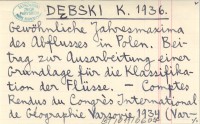 DĘBSKI K. 1936.
Gewöhnliche Jahresmaxima
des Abflusses in Polen. Bei-
trag zur Ausarbeitung einer
Grundlage für die Klassifika-
tion der Flüsse. — Comptes
Rendus du Congrès International
de Géographie Varsovie 1934 (Var-